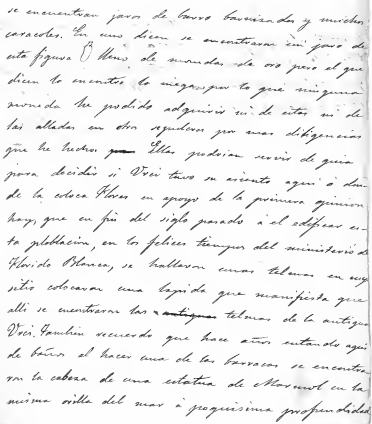 se encuentran jaros de barro barnizados y muchos
caracoles. En uno dicen se encontraron un jaro de
esta figura lleno de monedas de oro pero el que
dicen lo encontro lo niega, por lo que ninguna
moneda he podido adquirir ni de estas ni de
las alladas en otros sepulcros por mas diligencias
que he hecho. Ellas podrian servir de guia
para decidir si Urci tuvo su asiento aqui o don
de la coloca Florez en apoyo de la primera opinion
hay, que en fin del siglo pasado á el edificar es-
ta ploblacion, en los felices tiempos del ministerio de
Florido Blanca, se hallaron unas telmas en cuyo
sitio colocaron una lapida que manifiesta que
alli se encontraron las antiguas telmas de la antigua
Urci. Tambien recuerdo que hace años estando aqui
de baños al hacer una de las barracas se encontra
ron la cabeza de una estatua de Marmol en la
misma orilla del mar á poquisima profundidad